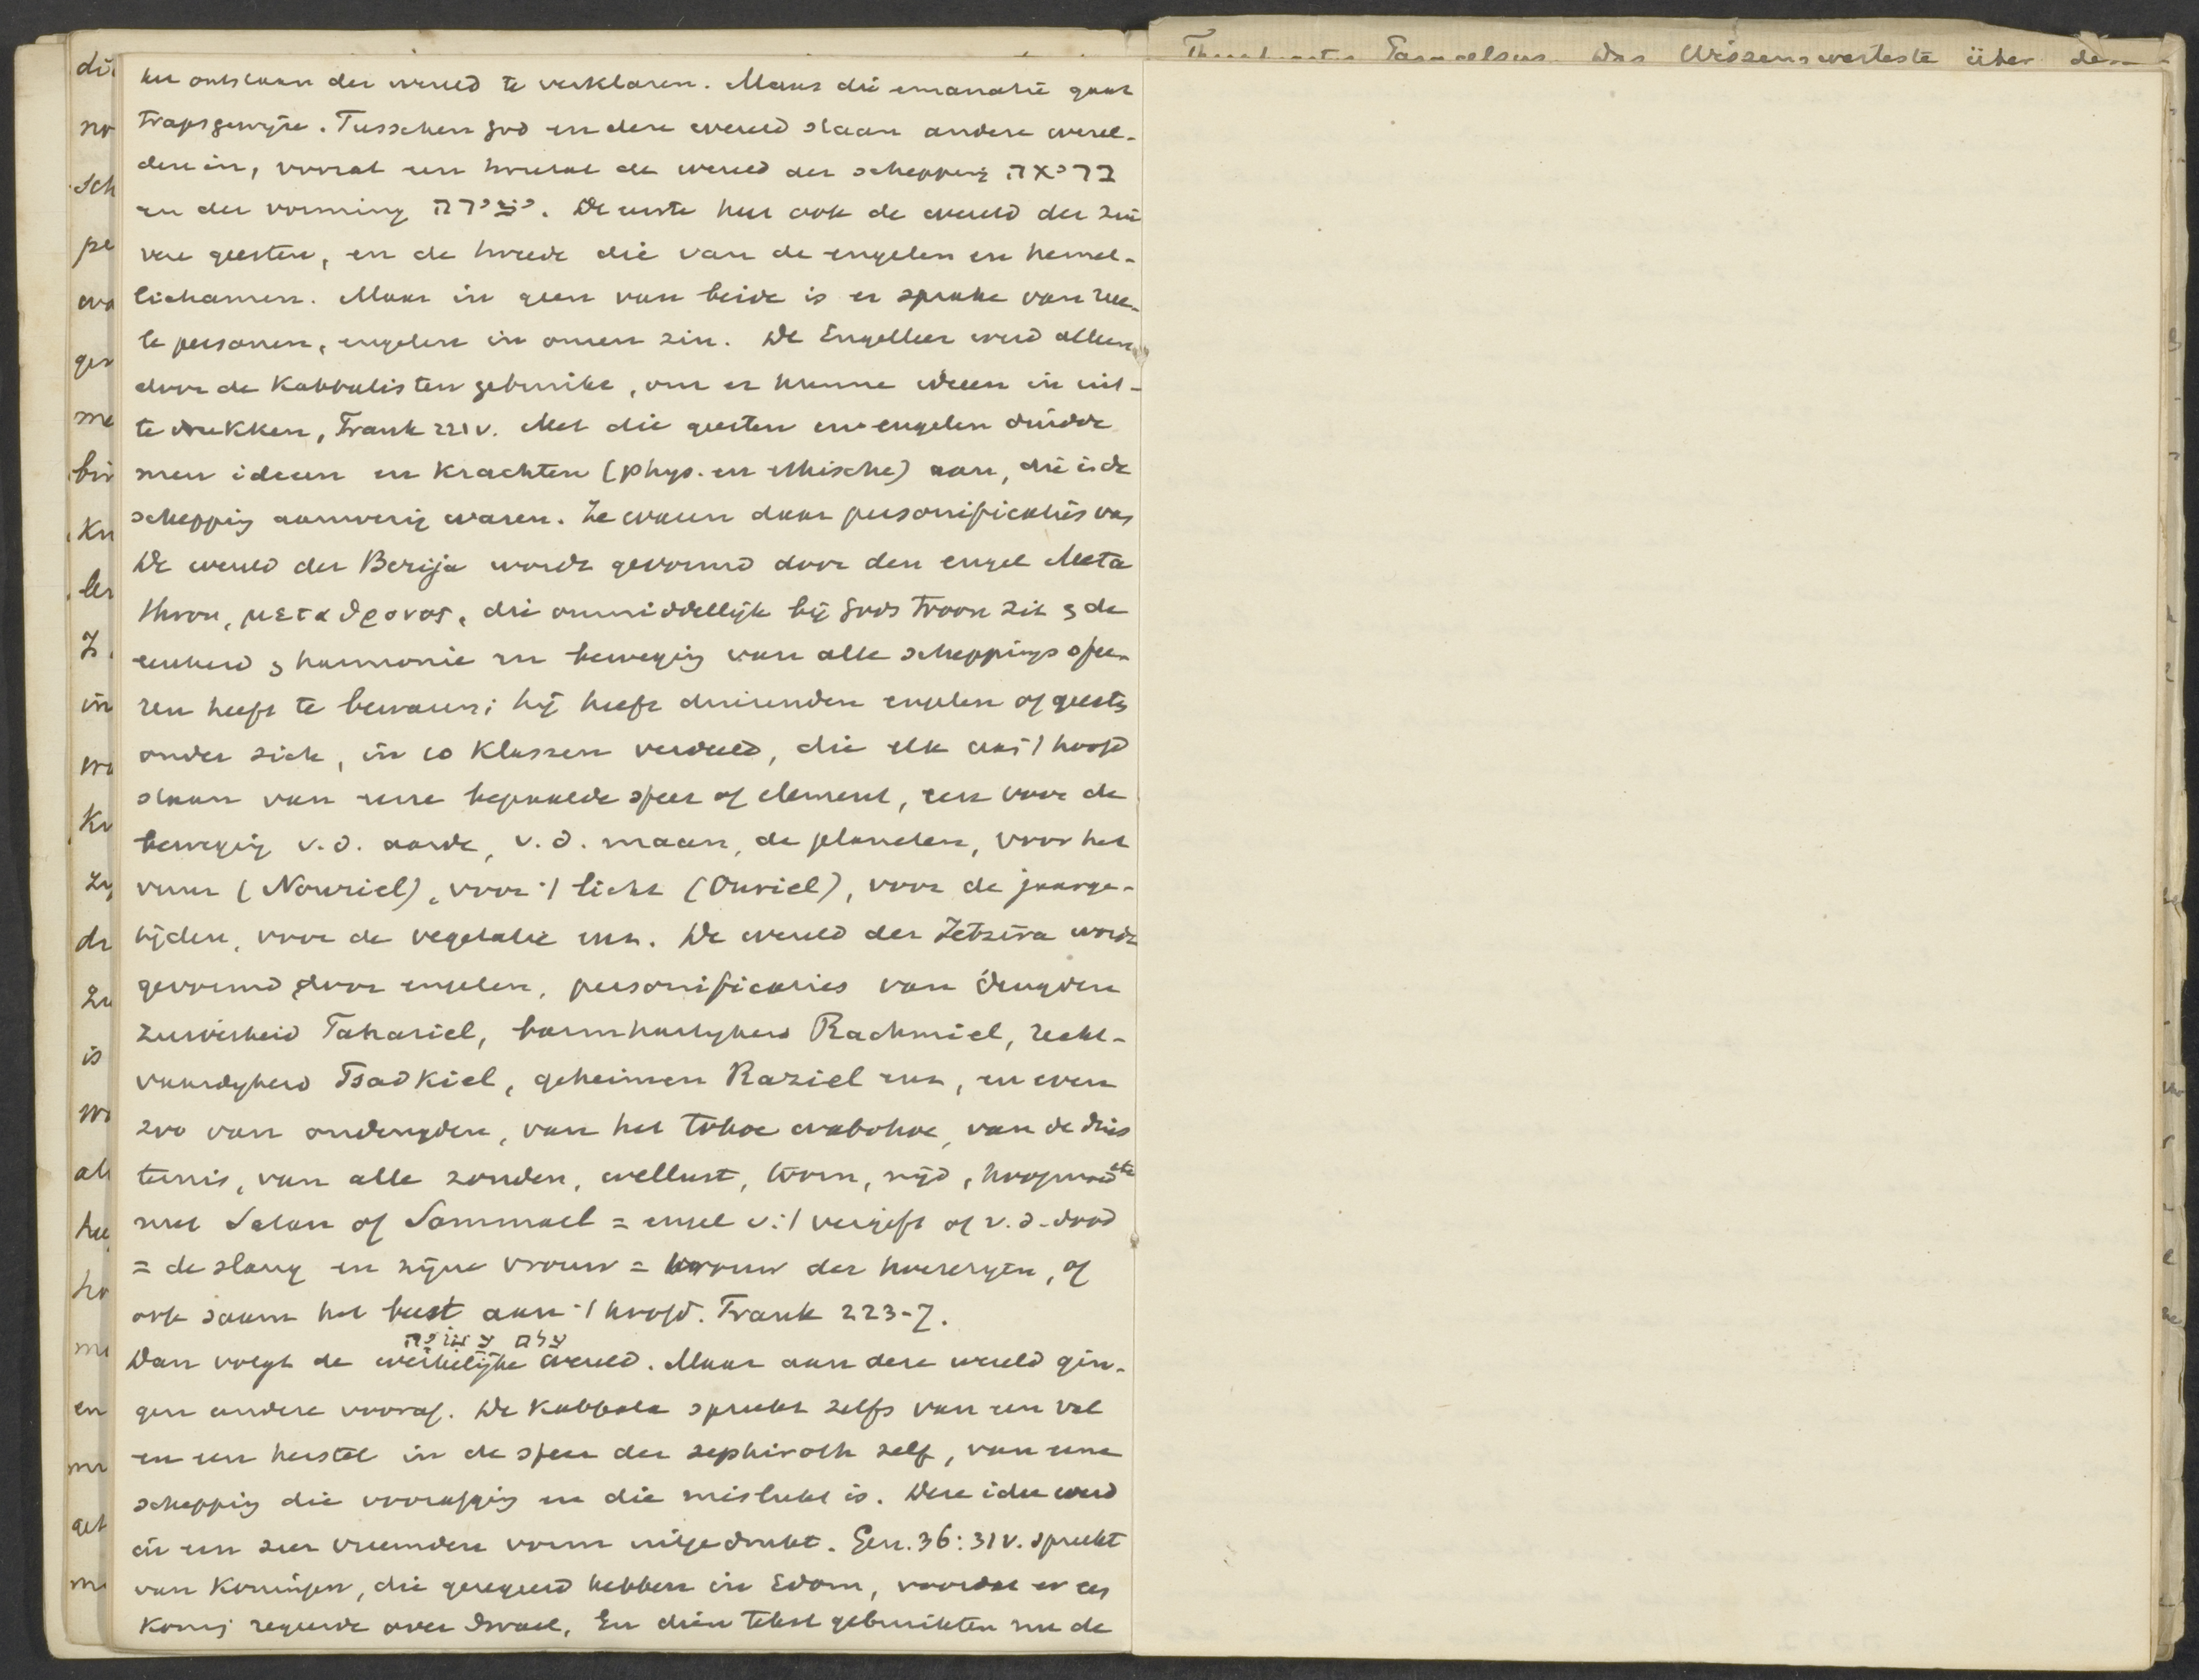 het ontstaan der wereld te verklaren. Maar die emanatie gaat
trapsgewijze. Tusschen God en deze wereld staan andere werel-
den in, vooral een tweetal de wereld der schepping בריאה
en der vorming יצירה. De eerste heet ook de wereld der zui
vere geesten, en de tweede die van de engelen en hemel-
lichamen. Maar in geen van beide is er sprake van reee-
le personen, engelen in onzen zin. De Engelleer werd alleen
door de Kabbalisten gebruikt, om er hunne ideeen in uit-
te drukken, Frank 221v. Met die geesten en engelen duidde
men ideeen en Krachten (phys. en ethische) aan, die i. de
schepping aanwezig waren. Ze waren daar personificaties van
De wereld der Berija wordt gevormd door den engel Meta
thron, μεταθρονος, die onmiddellijk bij Gods troon zit & de
eenheid & harmonie en beweging van alle scheppingssfee-
ren heeft te bewaren; hij heeft duizenden engelen of geesten
onder zich, in 10 Klassen verdeeld, die elk aan 't hoofd
staan van eene bepaalde sfeer of element, een voor de
beweging v.d. aarde, v.d. maan, de planeten, voor het
vuur (Nouriel), voor 't licht (Ouriel), voor de jaarge-
tijden, voor de vegetatie enz. De wereld der Jetzira wordt
gevormd door engelen, personificaties van deugden
zuiverheid Tahariel, barmhartigheid Rachmiel, recht-
vaardigheid Tsadkiel, geheimen Raziel enz, en even
zoo van ondeugden, van het tohoe wabohoe, van de duis
ternis, van alle zonden, wellust, toorn, nijd, hoogmoed etc
met Satan of Sammael = engel v. 't vergift of v.d. dood
= de slang en zijne vrouw = vrouw der hoererijen, of
ook saam het beest aan 't hoofd. Frank 223-7.
עלם עשיה
Dan volgt de werkelijke wereld. Maar aan deze wereld gin-
gen andere vooraf. De Kabbala spreekt zelfs van een val
en een herstel in de sfeer der sephiroth zelf, van eene
schepping die voorafging en die mislukt is. Deze idee werd
in een zeer vreemden vorm uitgedrukt. Gen. 36:31v. spreekt
van Koningen, die geregeerd hebben in Edom, voordat er een
Koning regeerde over Israel. En dien tekst gebruikten nu de
Paracelsus. Das Wissenswerteste über